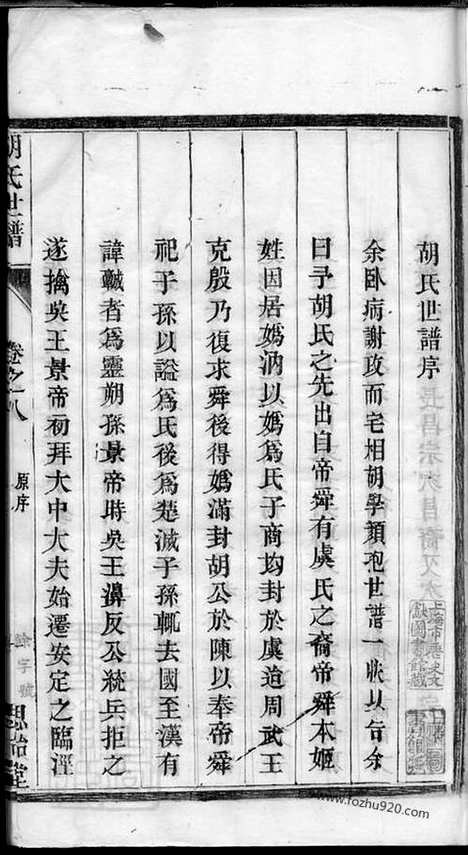 胡氏世譜序
余臥病謝攻而宅相胡學顏抱世譜一帙以告余
曰予胡氏之先出自帝舜有虞氏之裔帝舜本姬
姓因居媯汭以媯爲氏子商均封於虞迨周武王
克殷乃復求舜後得媯滿封胡公於陳以奉帝舜
祀子孫以謚爲氏後爲楚滅子孫輒去國至漢有
諱虪者爲靈朔孫景帝時吳王濞反公統兵拒之
遂擒吳王景帝初拜大中大夫始遷安定之臨涇
胡氏世譜
卷之八
原序
餘字號
思齡堂
上海市歷史文
獻圖書館藏
www.fozhu920.com